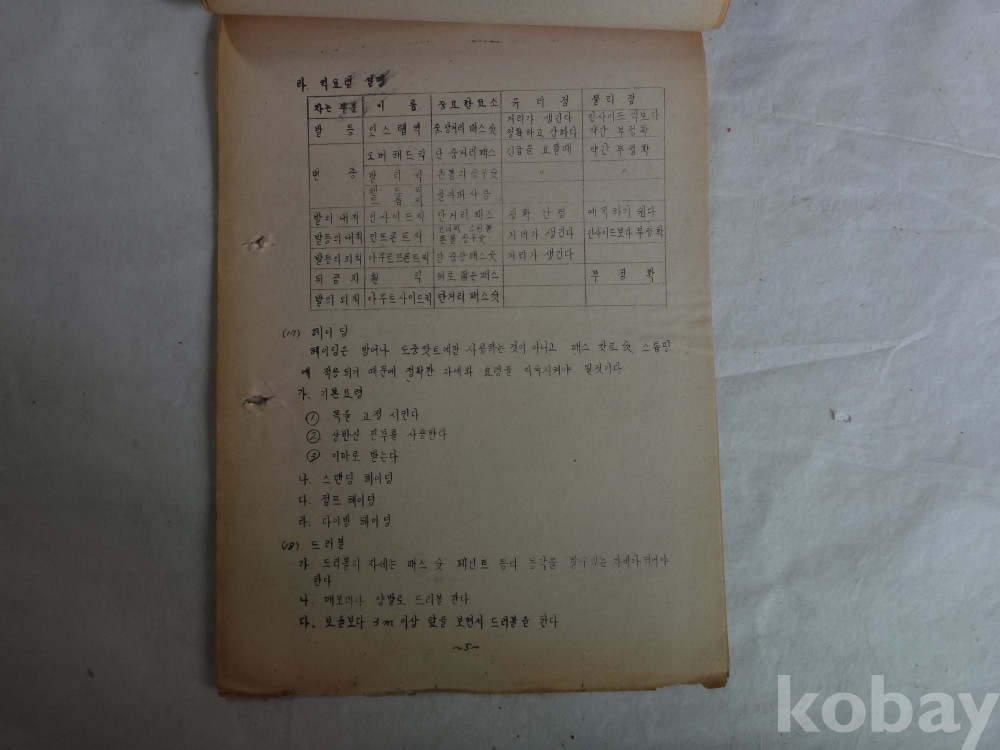 라. 킥요령 설명
차는 부분 이 름 중요한요소 유 리 점 불 리 점
발 등 인스텝킥 중,장거리 패스 슛 거리가 생긴다 정확하고 강하다 인사이드 킥보다 약간 부정확
오버헤드킥 단 중거리패스 긴급을 요할때 약간 부정확
발 리 킥 뜬볼의 슛 〃 〃
골키퍼 사용
발의 내측 인사이드킥 단거리 패스 정확 안정 예측하기 쉽다
발등의 내측 인프론트킥 코너킥 거리가 생긴다 인사이드보다 부정확
발등의 외측 아우트프론트킥 단 중장 패스 슛 거리가 생긴다
뒤꿈치 힐 킥 뒤로 뽑는패스 부 정 확
발의 외측 아우트사이드킥 단거리 패스 슛
(17) 헤이딩
헤이딩은 방어나 도중캇트에만 사용하는 것이 아니고 패스 슛, 스톱핑
에 적용되기 때문에 정확한 자세와 요령을 익숙시켜야 될것기다
가. 기본요령
① 목을 고정 시킨다
② 상반신 전부를 사용한다
③ 이마로 받는다
나. 스탠딩 헤이딩
다. 점프 헤이딩
라. 다이빙 헤이딩
(18) 드리블
가. 드리블의 자세는 패스 슛 페인트 등의 동작을 할수있는 자세가 되어야
한다
나. 양발로 드리블 한다.
다. 보올보다 3m 이상 앞을 보면서 드리블을 한다
~5~
kobay